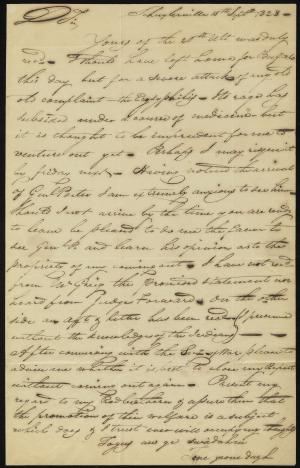 Schuylerville 15th Septr 1828
D Sir,
Yours of the 28th Ult was duly
recd. I should have left home for Buffalo
this day, but for a severe attack of my old
old complaint — the Erysipelas. Its rage has
subsided under a course of medicine but
it is thought to be imprudent for me to
venture out yet — Perhaps I may risque it
by friday next — Having noticed the arrival
of Genl Porter I am extremely anxious to see him
Should I not arrive by the time you are ready
to leave be pleased to do me the favor to
see Genl P. and learn his opinion as to the
propriety of my coming out — I have not recd
from Mr Greig the promised statement nor
heard from Judge Forward. On the other
side an of letter has been recd I presume
without the knowledge of the Indians
After conversing with the be pleased to
advise me whether it is best to close my Report
without coming out again — Present my
regard to my Red brothers & assure them that
the promotion of their welfare is a subject
which does & I trust ever will my